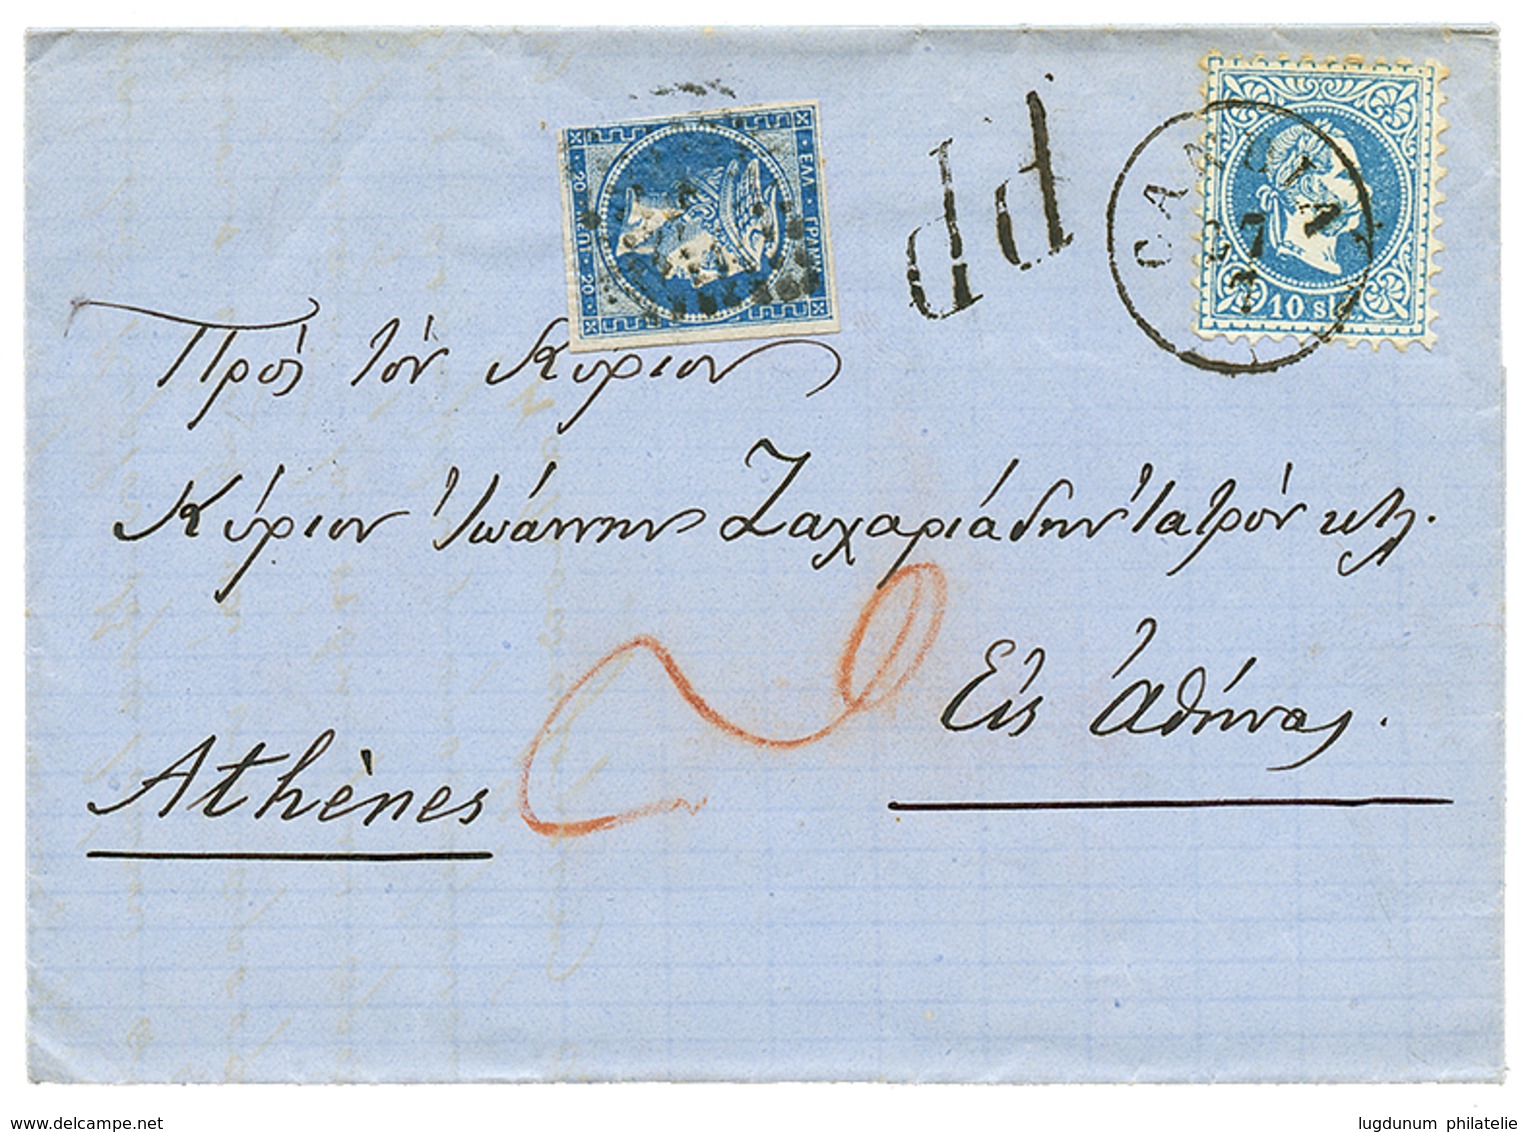 ΕΛΛ · ΓΡΑΜΜ
20 · ΛΕΠΤ · 20
PP
CANDIA
27
10 sld
Πρὸς τὸν Κύριον
Κύριον Ἰωάννην Ζαχαριάδην Ἰατρὸν κτλ.
Εἰς Ἀθήνας.
Athènes
www.delcampe.net
lugdunum philatelie